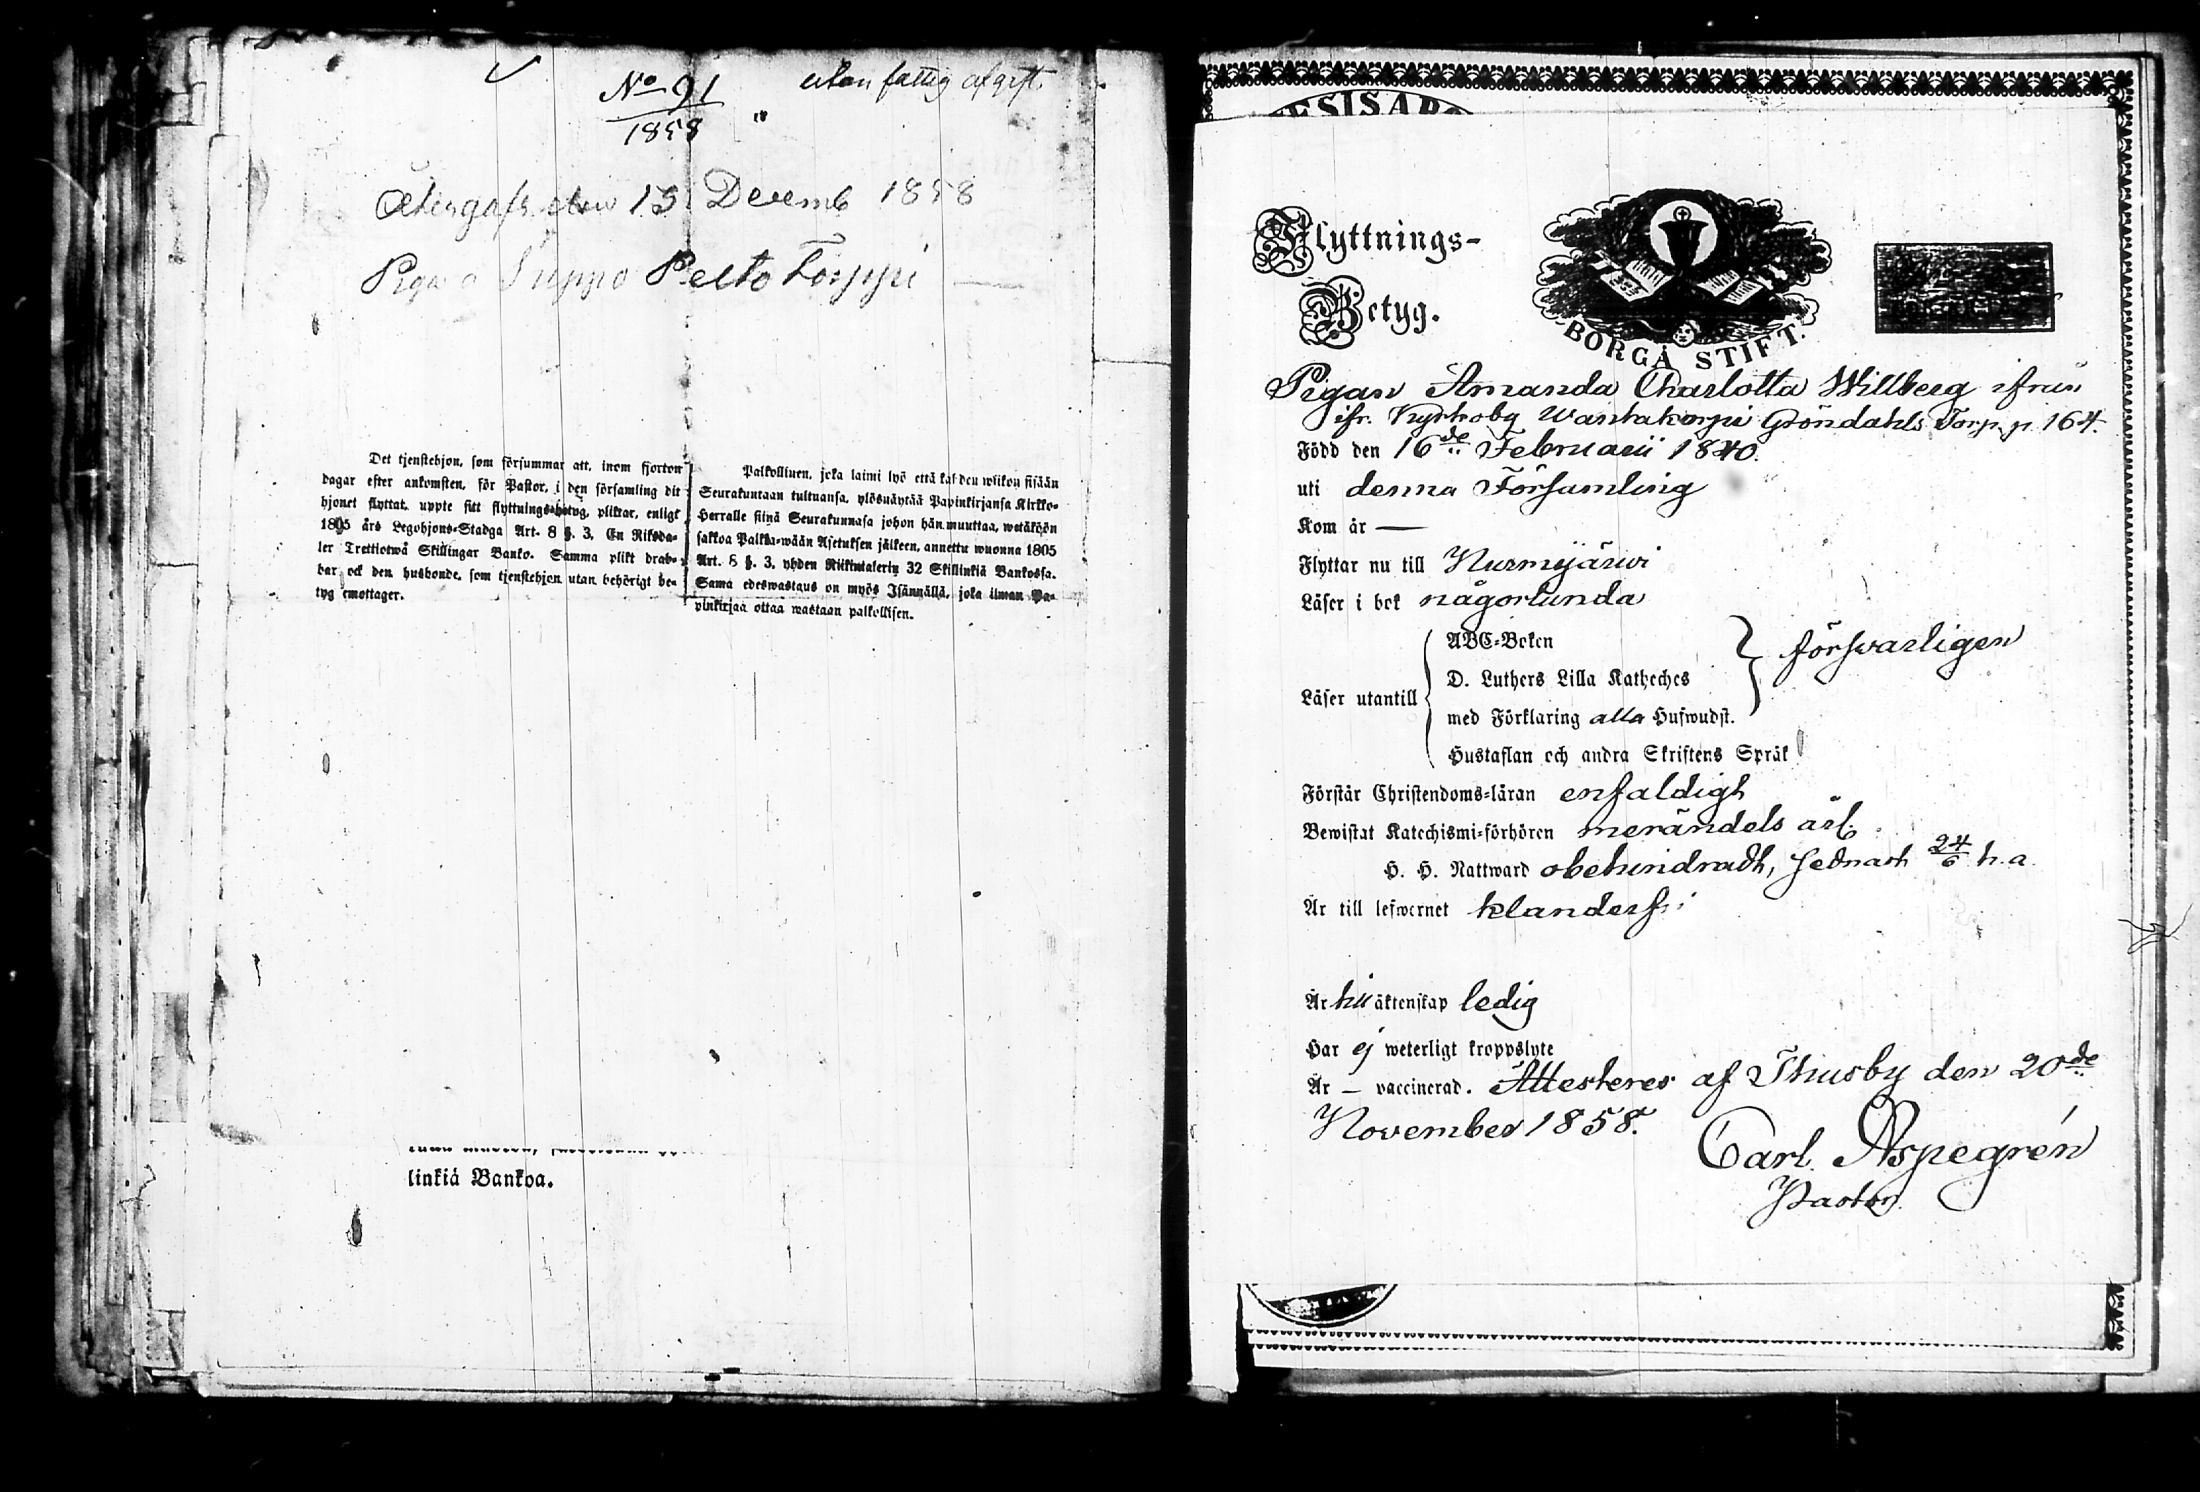 No 91
1858
utan fattig afgift.
den 13 Decemb 1858
Pelto Torppi
Det tjenstehjon, som försummar att, inom fjorton
dagar efter ankomsten, för Pastor, i den församling dit
hjonet flyttat, uppte sitt flyttnings-betyg, pliktar, enligt
1805 års Legohjons-Stadga Art. 8 §. 3, En Riksda-
ler Trettiotwå Skillingar Banko. Samma plikt drab-
bar ock den husbonde, som tjenstehjon utan behörigt be-
tyg emottager.
Palkollinen, joka laimi lyö että kahden wiikon sisään
Seurakuntaan tultuansa, ylösnäytää Papinkirjansa Kirkko-
Herralle siinä Seurakunnasa johon hän muuttaa, wetäköön
sakkoa Palkka-wään Asetuksen jälkeen, annettu wuonna 1805
Art. 8 §. 3, yhden Riikintalerin 32 Skillinkiä Bankossa.
Sama edeswastaus on myös Isännällä, joka ilman Pa-
pinkirjaa ottaa wastaan palkollisen.
linkiä Bankoa.
Flyttnings-
Betyg.
BORGÅ STIFT.
Pigan Amanda Charlotta Willberg ifrån
ifr. Kyrkoby Wantakorpi Gröndahls Torp p 164.
Född den 16de Februarii 1840.
uti denna Församling
Kom år —
Flyttar nu till Nurmijärwi
Läser i bok någorlunda
ABC-Boken
D. Luthers Lilla Katheches
försvarligen
Läser utantill
med Förklaring alla Hufwudst.
Hustaflan och andra Skriftens Språk
Förstår Christendoms-läran enfaldigt
Bewistat Katechismi-förhören merändels årl.
H. H. Nattward obehindradt, sednast 24/6 h.a.
Är till lefwernet klanderfri
Är till äktenskap ledig
Har ej weterligt kroppslyte
Är — vaccinerad. Attesteres af Thusby den 20de
November 1858.
Carl Aspegrén
Pastor.